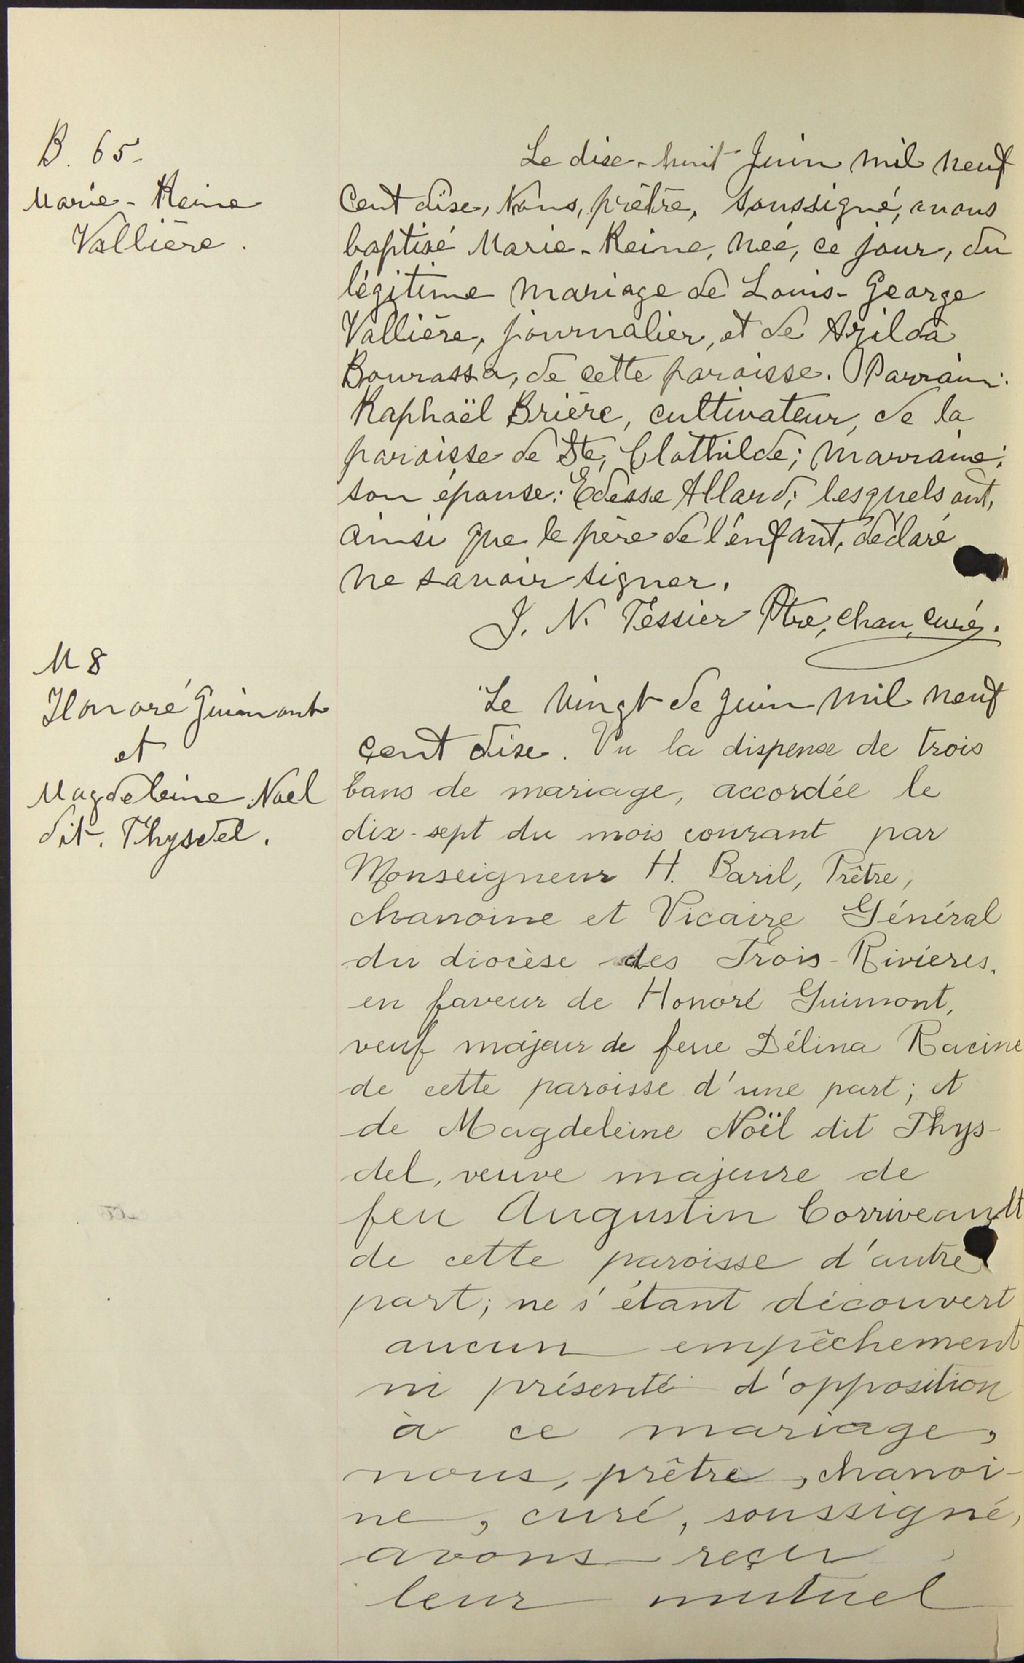 B. 65.
Marie-Reine
Vallière.
Le dise-huit Juin mil neuf
Cent dise, Nous, prêtre, soussigné, avons
baptisé Marie-Reine, née, ce jour, du
légitime mariage de Louis-George
Vallière, journalier, et de Azilda
Bourassa, de cette paroisse. Parrain:
Raphaël Brière, cultivateur, de la
paroisse de Ste, Clothilde; marraine:
son épouse: Edesse Allard; lesquels ont,
ainsi que le père de l'enfant, déclaré
ne savoir signer.
J. N. Tessier Ptre, chan, curé.
M 8
Honoré Guimont
et
Magdeleine Noel
dit. Thysdel.
Le vingt de juin mil neuf
cent dise. Vu la dispense de trois
bans de mariage, accordée le
dix-sept du mois courant par
Monseigneur H. Baril, Prêtre,
chanoine et Vicaire Général
du diocèse des Trois-Rivières,
en faveur de Honoré Guimont,
veuf majeur de feue Délina Racine
de cette paroisse d'une part; et
de Magdeleine Noël dit Thys-
del, veuve majeure de
feu Augustin Corriveault
de cette paroisse d'autre
part; ne s'étant découvert
aucun empêchement
ni présenté d'opposition
à ce mariage,
nous, prêtre, chanoi-
ne, curé, soussigné,
avons reçu
leur mutuel